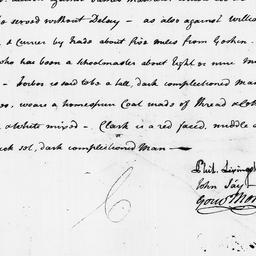 be served without Delay – as also against Willia
& Currier by trade about five miles from Goshen.
who has been a Schoolmaster about Eight or nine m
– Forbes is said to be a tall, dark complectioned ma
wears a homespun Coat made of thread & Cot
& White mixed – Clark is a red faced, middle
ck set, dark complectioned Man –
Phil. Livings
John Jay
Gouv Mor